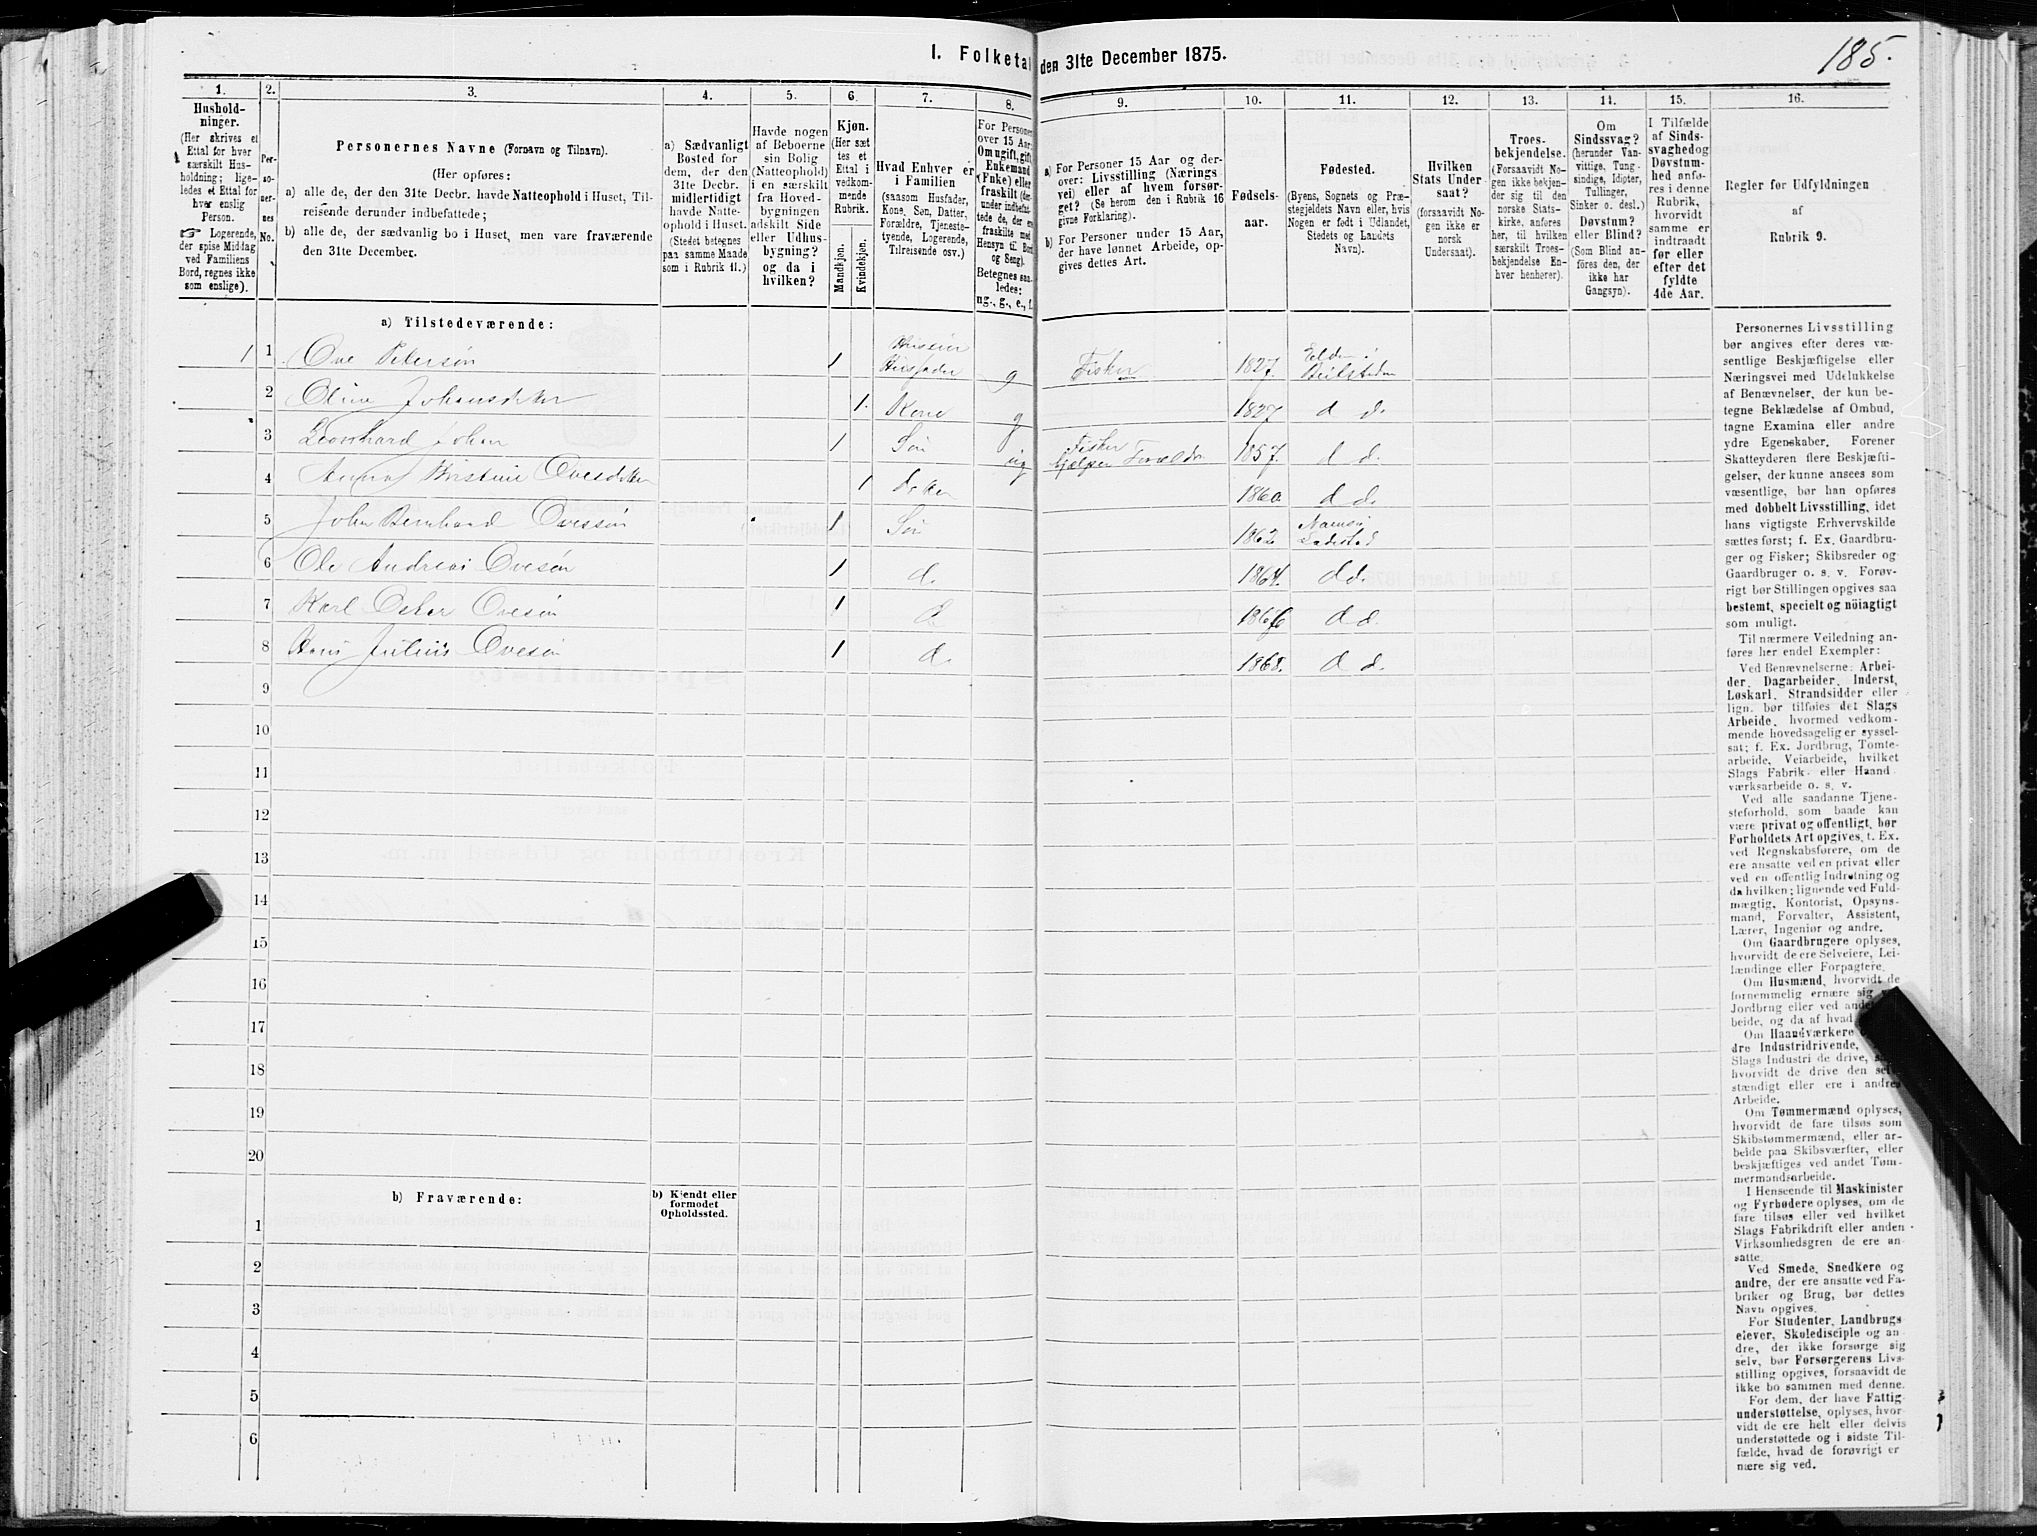 I. Folketal den 31te December 1875.
185.
1.
Husholdninger.
(Her skrives et
Ettal for hver
særskilt Husholdning; ligeledes et Ettal for
hver enslig
Person.
☞ Logerende,
der spise Middag
ved Familiens
Bord, regnes ikke
som enslige).
2.
Personernes No.
3.
Personernes Navne (Fornavn og Tilnavn).
(Her opføres:
a) alle de, der den 31te Decbr. havde Natteophold i Huset, Tilreisende derunder indbefattede;
b) alle de, der sædvanlig bo i Huset, men vare fraværende
den 31te December.
4.
a) Sædvanligt
Bosted for
dem, der den
31te Decbr.
midlertidigt
havde Natteophold i Huset.
(Stedet betegnes
paa samme Maade
som i Rubrik 11.)
5.
Havde nogen
af Beboerne
sin Bolig
(Natteophold)
i en særskilt
fra Hovedbygningen
adskilt Side
eller Udhusbygning?
og da i
hvilken?
6.
Kjøn.
(Her sættes et
Ettal i
vedkommende
Rubrik.
Mandkjøn.
Kvindekjøn.
7.
Hvad Enhver er
i Familien
(saasom Husfader,
Kone, Søn, Datter,
Forældre, Tjenestetyende, Logerende,
Tilreisende osv.)
8.
For Personer
over 15 Aar:
Om ugift, gift,
Enkemand
(Enke) eller
fraskilt
Betegnes saaledes:
ug., g., e., f.
9.
a) For Personer 15 Aar og derover: Livsstilling (Næringsvei) eller af hvem forsørget? (Se herom den i Rubrik 16
givne Forklaring).
b) For Personer under 15 Aar,
der have lønnet Arbeide, opgives dettes Art.
10.
Fødselsaar.
11.
Fødested.
(Byens, Sognets og Præstegjeldets Navn eller, hvis
Nogen er født i Udlandet,
Stedets og Landets
Navn).
12.
Hvilken
Stats Undersaat?
(forsaavidt Nogen ikke er
norsk
Undersaat).
13.
Troesbekjendelse.
(Forsaavidt Nogen ikke bekjender sig til den
norske Statskirke, anføres
her, til hvilken
særskilt Troesbekjendelse Enhver henhører).
14.
Om
Sindssvag?
(herunder Vanvittige, Tungsindige, Idioter,
Tullinger,
Sinker o. desl.)
Døvstum?
eller Blind?
(Som Blind anføres den, der
ikke har
Gangsyn).
15.
I Tilfælde
af Sindssvaghed og
Døvstumhed anføres i denne
Rubrik,
hvorvidt
samme er
indtraadt
før eller
efter det
fyldte
4de Aar.
16.
Regler for Udfyldningen
af
Rubrik 9.
a) Tilstedeværende:
1 1 Ove Petersøn 1 Huseier Husfader g Fisker 1827. Elden i Beitstaden
2 Oline Johansdtter 1. Kone g 1827 d d.
3 Leonhard Johan 1 Søn ug Fisker hjælper Foræld. 1857. d d.
4 Anna Kristine Ovesdtter 1 Dtter 1860 d d.
5 John Bernhard Ovesøn 1 Søn 1862 Namsos Ladested
6 Ole Andreas Ovesøn 1 d. 1864. d d.
7 Karl Oskar Ovesøn 1 d 1866 d d.
8 Hans Julius Ovesøn 1 d. 1868. d d.
9
10
11
12
13
14
15
16
17
18
19
20
b) Fraværende:
b) Kjendt eller
formodet
Opholdssted.
1
2
3
4
5
6
Personernes Livsstilling
bør angives efter deres væsentlige Beskjæftigelse eller
Næringsvei med Udelukkelse
af Benævnelser, der kun betegne Beklædelse af Ombud,
tagne Examina eller andre
ydre Egenskaber. Forener
Skatteyderen flere Beskjæftigelser, der kunne ansees som
væsentlige, bør han opføres
med dobbelt Livsstilling, idet
hans vigtigste Erhvervskilde
sættes først; f. Ex. Gaardbruger og Fisker; Skibsreder og
Gaardbruger o. s. v. Forøvrigt bør Stillingen opgives saa
bestemt, specielt og nöiagtigt
som muligt.
Til nærmere Veiledning anføres her endel Exempler:
Ved Benævnelserne: Arbeider, Dagarbeider, Inderst,
Løskarl, Strandsidder eller
lign. bør tilføies det Slags
Arbeide, hvormed vedkommende hovedsagelig er sysselsat; f. Ex. Jordbrug, Tomtearbeide, Veiarbeide, hvilket
Slags Fabrik- eller Haandværksarbeide o. s. v.
Ved alle saadanne Tjenesteforhold, som baade kan
være privat og offentligt, bør
Forholdets Art opgives, f. Ex.
ved Regnskabsførere, om de
ere ansatte ved en privat eller
ved en offentlig Indretning og
da hvilken; lignende ved Fuldmægtig, Kontorist, Opsynsmand, Forvalter, Assistent,
Lærer, Ingeniør og andre.
Om Gaardbrugere oplyses,
hvorvidt de ere Selveiere, Leilændinge eller Forpagtere.
Om Husmænd, hvorvidt de
fornemmelig ernære sig
Jordbrug eller ved
og da af hvad
Om Haandværkere
Industridrivende,
Slags Industri de drive,
hvorvidt de drive den selvstændigt eller ere i andres
Arbeide.
Om Tømmermænd oplyses,
hvorvidt de fare tilsøs som
Skibstømmermænd, eller arbeide paa Skibsværfter, eller
beskjæftiges ved andet Tømmermandsarbeide.
I Henseende til Maskinister
og Fyrbødere oplyses, om de
fare tilsøs eller ved hvilket
Slags Fabrikdrift eller anden
Virksomhedsgren de ere ansatte.
Ved Smede, Snedkere og
andre, der ere ansatte ved Fabriker og Brug, bør dettes
Navn opgives.
For Studenter, Landbrugselever, Skoledisciple og andre, der ikke forsørge sig
selv, bør Forsørgerens Livsstilling opgives, forsaavidt de
ikke bo sammen med denne.
For dem, der have Fattigunderstøttelse, oplyses, hvorvidt de ere helt eller delvis
understøttede og i sidste Tilfælde, hvad de forøvrigt ernære sig ved.